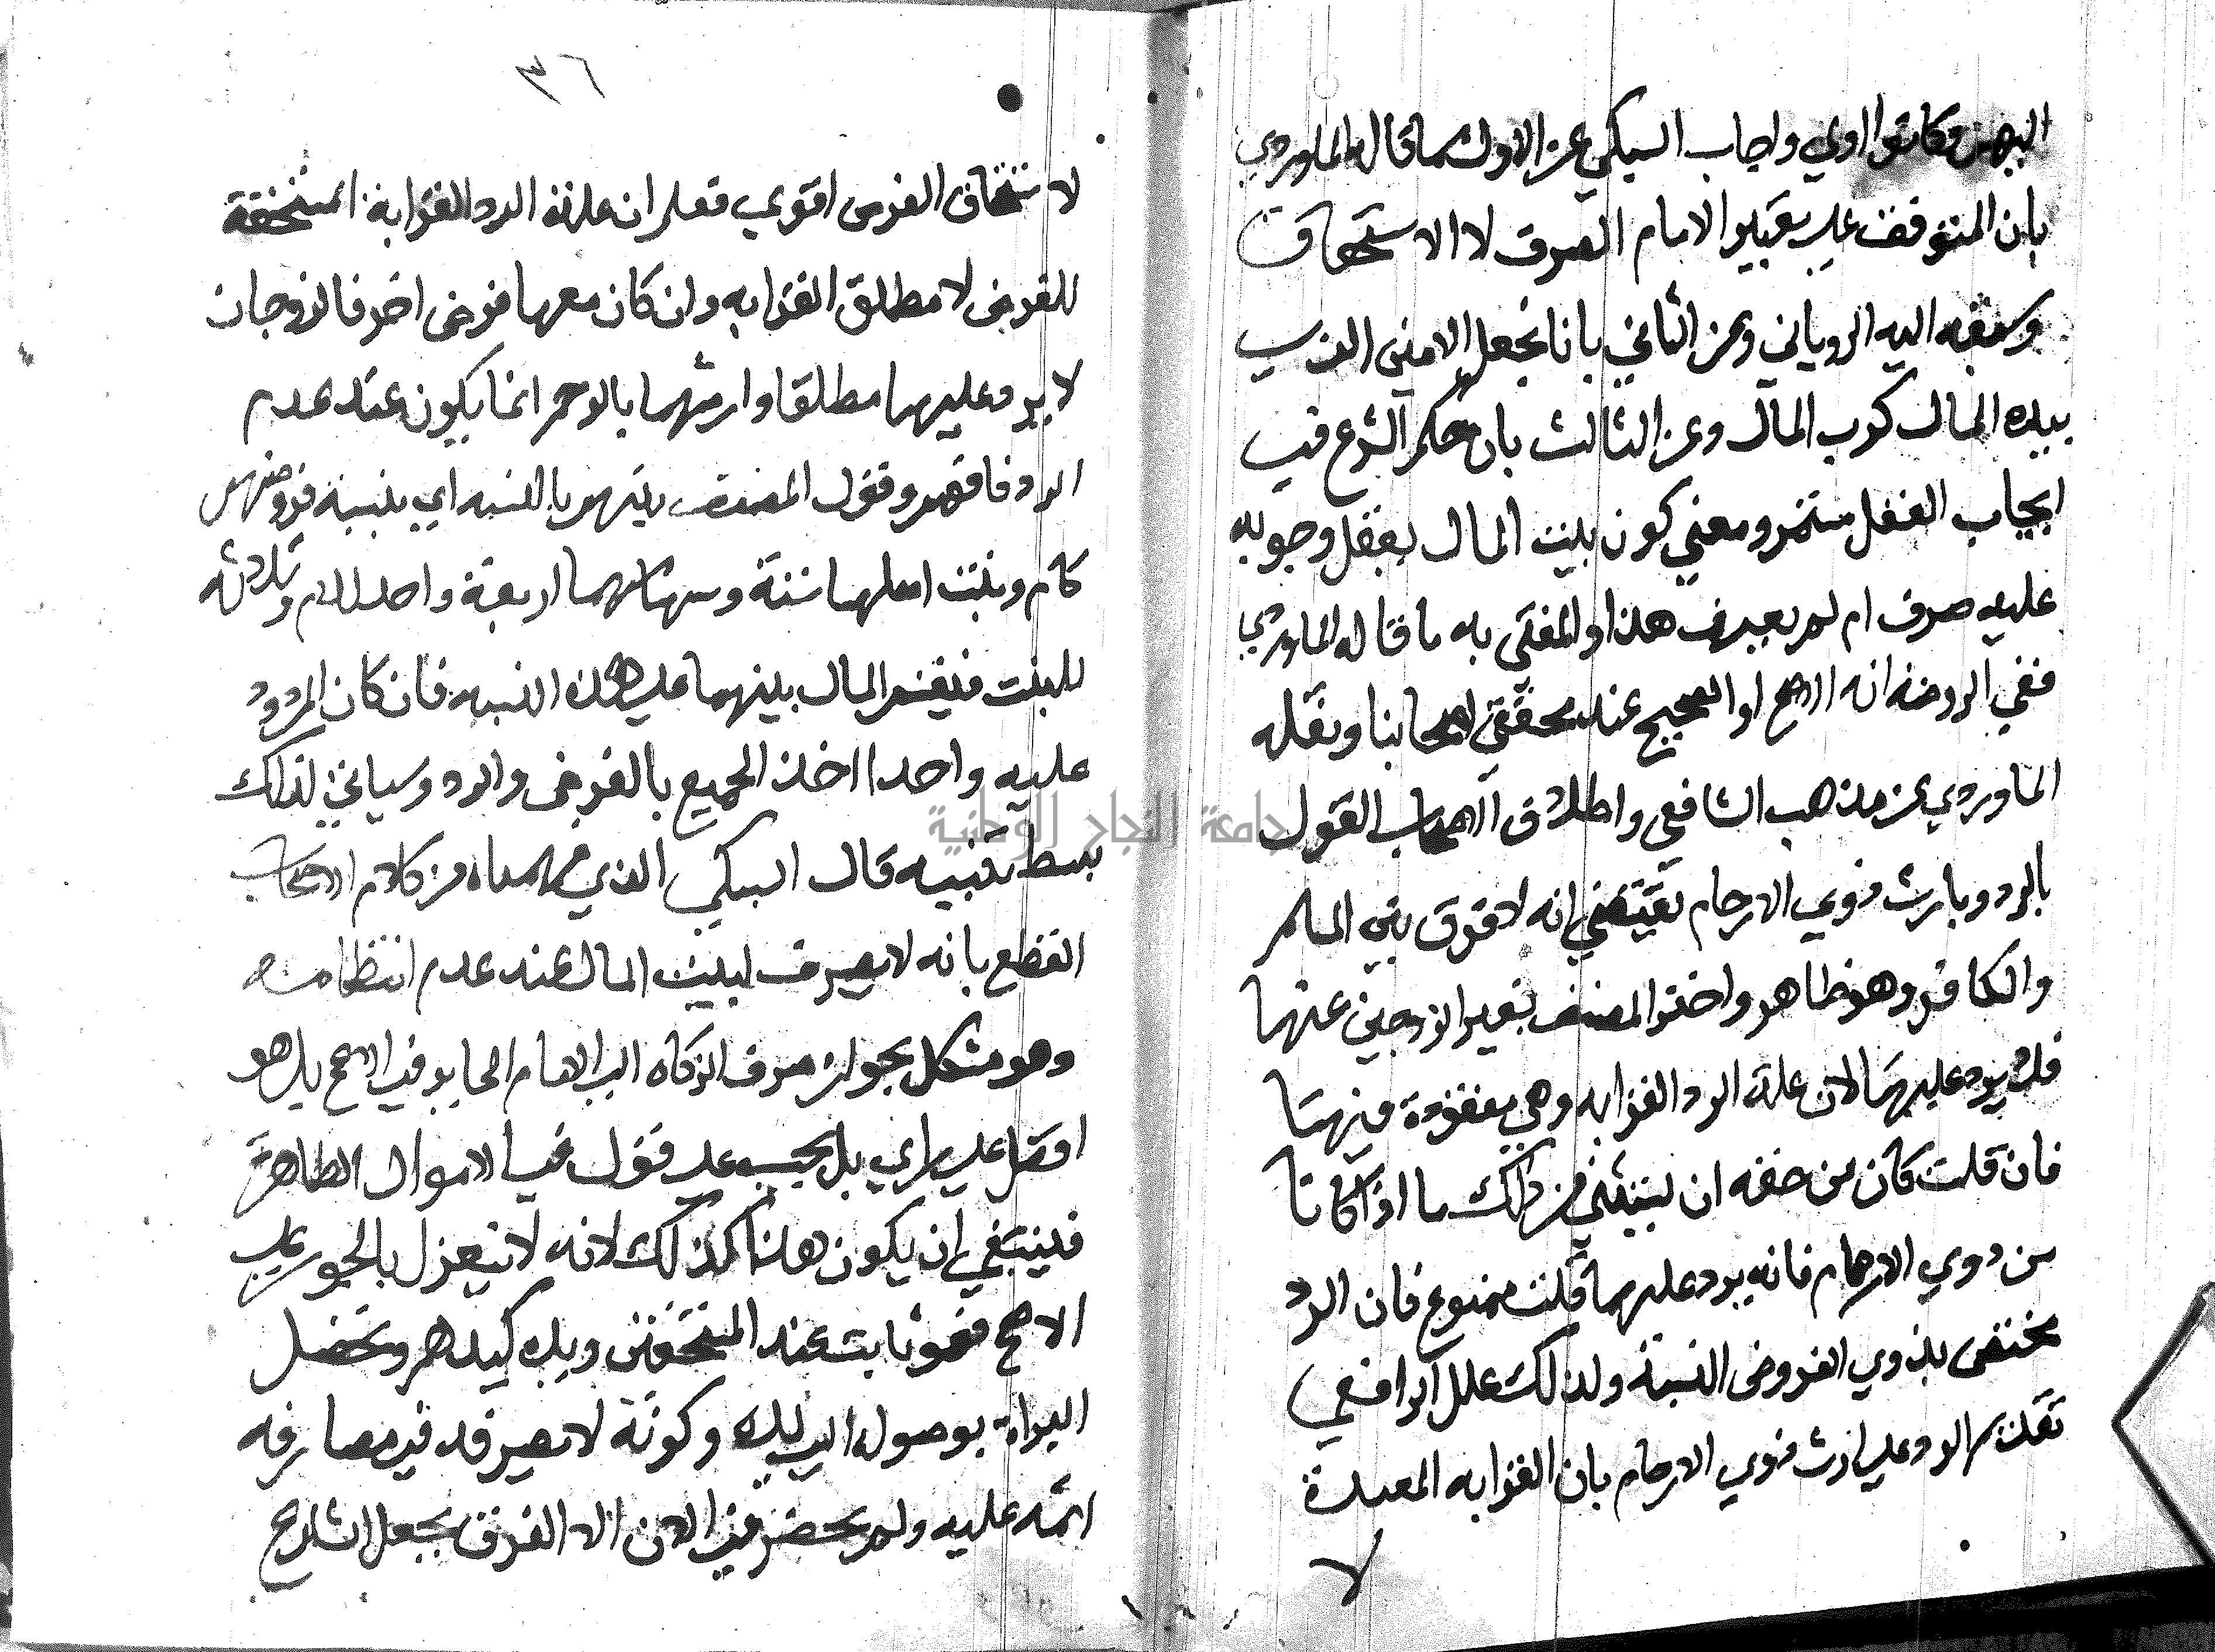 البهم فكانوا اولي واجاب السبكي عن الاول بما قاله الماوردي
بان المتوقف علي تعيير الامام الصرف لا الاستحقاق
وسبقه اليه الروياني وعن الثاني بانا نجعل الامين الذي
بيده المال كرب المال وعن الثالث بان حكم الشرع في
ايجاب الغفل مستمر ومعني كون بيت المال يعقل وجوبه
عليه صرف ام لم يصرف هذا والمفتي به ما قاله الماوردي
ففي الروضة انه الاصح او الصحيح عند محققي اصحابنا ونقله
الماوردي عن مذهب الشافعي واطلاق الاصحاب القول
بالرد وبارث ذوي الارحام يقتضي انه لا فرق بين المسلم
والكافر وهو ظاهر واحترز المصنف بغير الزوجين عنهما
فلا يرد عليهما لان علة الرد القرابه وهي مفقودة فيهما
فان قلت كان من حقه ان يستثني من ذلك ما اذا كانا
من ذوي الارحام فانه يرد عليهما قلت ممنوع فان الرد
مختص بذوي الفروض النسبية ولذلك علل الرافعي
تقديم الرد علي ارث ذوي الارحام بان القرابه المفيدة
لا
٣٦
لاستحقاق الفرض اقوي فعلم ان علة الرد القرابة المستحقة
للفرض لا مطلق القرابه وان كان معها فرض اخر فالزوجان
لا يرد عليهما مطلقا وارثهما بالرحم انما يكون عند عدم
الرد فافهم وقول المصنف بينهم بالنسبه اي بنسبة فروضهم
كام وبنت اصلها ستة وسهامهما اربعة واحد للام وثلاثه
للبنت فيقسم المال بينهما علي هذه النسبه فان كان المردود
عليه واحدا اخذ الجميع بالفرض والرد وسياتي لذلك
بسط تنبيه قال السبكي الذي فهمناه من كلام الاصحاب
القطع بانه لا يصرف لبيت المال عند عدم انتظامه
وهو مشكل بجواز صرف الزكاه الي الامام الجاير في الاصح بل هو
افضل علي راي بل يجب علي قول في الاموال الظاهرة
فينبغي ان يكون هذا كذلك لانه لا ينعزل بالجور علي
الاصح فهو نايب عند المستحقين ويده كيدهم وتحصل
البراة بوصوله الي يده وكونه لا يصرفه في مصارفه
اثمه عليه ولم يحضرني الان الا الفرق بجعل الشارع
جامعة النجاح الوطنية